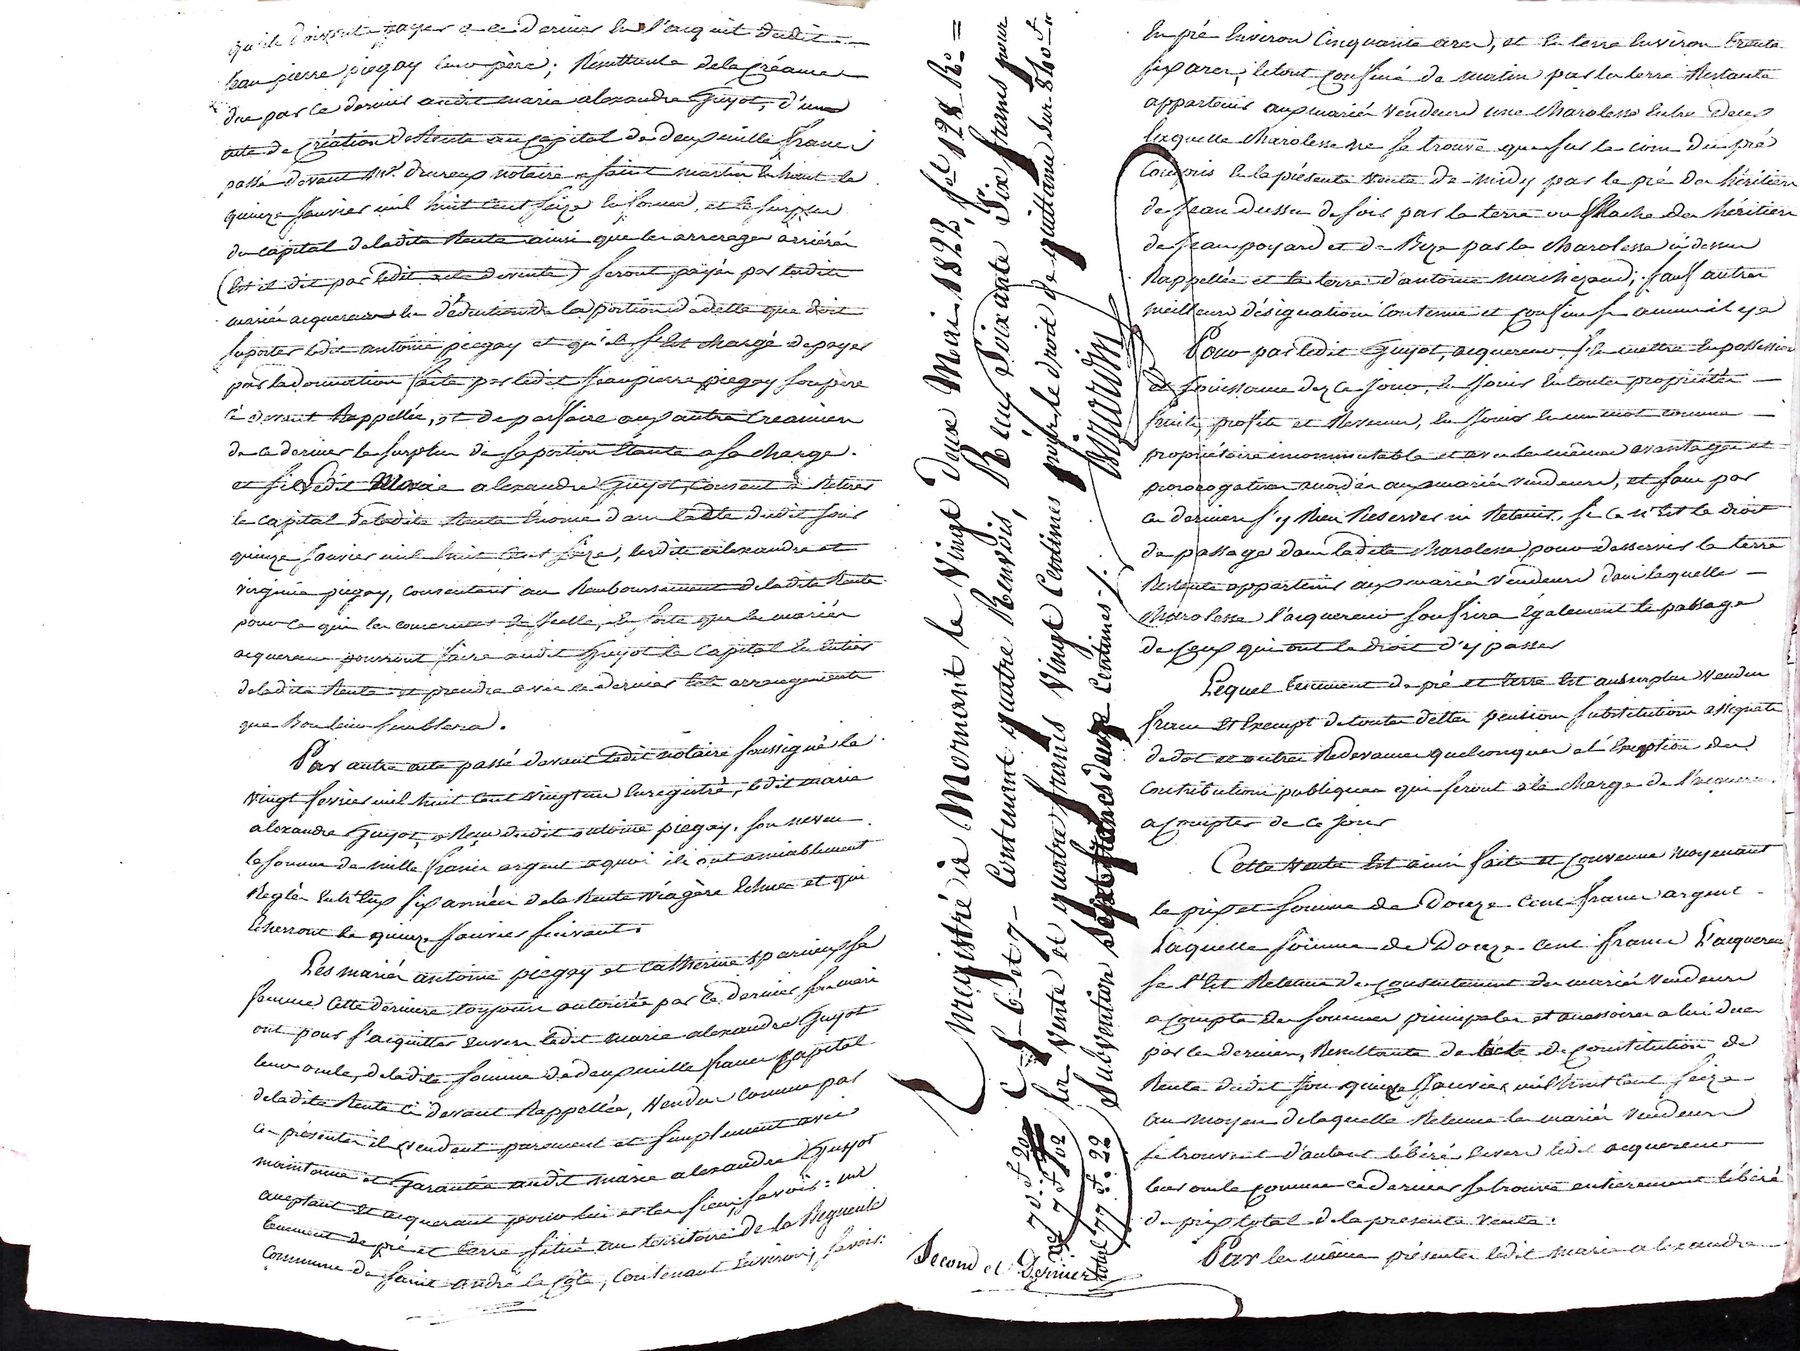 qu'ils doivent payer a ce dernier en l'acquit dudit
Jean pierre piegay leur père; Résultante de la Créance
due par ce dernier audit marie alexandre Guyot, d'un
acte de Création de Rente au Capital de deux mille francs
passé devant me. notaire a saint martin En haut le
quinze Janvier mil huit Cent Seize En forme, et le surplus
du capital de ladite Rente ainsi que les arrerages arriérés
(Est il dit par ledit acte de vente) seront payés par lesdits
mariés acquereurs En déduction de la portion d'icelle que doit
suporter ledit antoine piegay et qu'il s'Est chargé de payer
par la donnation faite par ledit Jean pierre piegay son père
ci devant Rappellée, et de parfaire aux autres Creanciers
de ce dernier le surplus de sa portion Etante a sa charge.
et si ledit Marie alexandre Guyot, Consent à Retirer
le capital de ladite Rente Enoncé dans l'acte dudit Jour
quinze Janvier mil huit Cent seize, lesdits alexandre et
virginie piegay, consentent au Remboursement de ladite Rente
pour ce qui les concernent En icelle, En sorte que les mariés
acquereurs pourront faire audit Guyot le Capital En Entier
de ladite Rente et prendre avec ce dernier tels arrangements
que Bon leur semblera.
Par autre acte passé devant ledit notaire soussigné le
vingt fevrier mil huit Cent vingt un Enregistré, ledit marie
alexandre Guyot, a Reçu dudit antoine piegay, son neveu
la somme de mille francs argent a quoi ils ont amiablement
Reglés Entr'Eux six années de la Rente viagère Echues et qui
Echerront le quinze Janvier suivant.
Les mariés antoine piegay et Catherine Sparvieux sa
femme Cette derniere toujours autorisée par Ce dernier, son mari
ont pour s'acquitter Envers ledit marie alexandre Guyot
leur oncle, de ladite somme de deux mille francs Capital
de ladite Rente Ci devant Rappellée, Vendu Comme par
Ces présentes ils vendent purement et simplement avec
maintenue et Garantie audit marie alexandre Guyot
aceptant Et acquerant pour lui et les siens, savoir: un
tenement de pré et terre situé au territoire de la
Commune de saint andré la Côte, Contenant Environ, savoir:
Enregistré à Mornant le Vingt Deux Mai 1822, fol. 128 Ro.
C. 5. 6. et 7. Contenant quatre Renvois, Réçu Soixante Dix francs pour
la Vente et quatre francs Vingt Centimes pour le droit de quittance sur 840 f.
Subvention Sept francs deux Centimes /.
70. f 20
7 f 02
Total 77 f. 22
Second et Dernier
En pré Environ Cinquante ares, et En terre Environ trente
six ares, letout Confiné de matin par la terre Restante
appartenir aux mariés vendeurs une Charolesse Entre deux
laquelle Charolesse ne se trouve que sur le coin du pré
Compris En la présente vente de midy par le pré des héritiers
de Jean dussu de soir par la terre ou flache des héritiers
de Jean poyard et de Bize par la Charolesse ci dessus
Rappellée et la terre d'antoine Machizaud; sauf autres
meilleurs désignation Contenue et Confins si aucuns il y a
Pour par ledit Guyot, acquereur, s'En mettre En possession
et Jouissance dez ce Jour, En Jouir En toutes propriétés
fruits, profits et Revenus, En Jouir En un mot comme
propriétaire incommutable et avec les mêmes avantages et
prorogatives accordés aux mariés vendeurs, et sans par
Ces derniers s'y Rien Reserver ni Retenir, si Ce n'Est le droit
de passage dans ladite Charolesse pour desservir la terre
Restante appartenir aux mariés Vendeurs dans laquelle
Charolesse l'acquereur souffrira Egalement le passage
de Ceux qui ont le droit d'y passer
Lequel tenement de pré et terre Est au surplus Vendu
franc Et Exempt de toutes dettes pensions substitutions assignats
de dot et autres Redevances quelconques a l'Exception des
Contributions publiques qui seront a la charge de l'acquereur
a Compter de Ce Jour
Cette Vente Est ainsi faite et Convenue moyenant
le prix et somme de Douze Cent francs argent
Laquelle somme de Douze Cent francs L'acquereur
se l'Est Retenue du Consentement des mariés Vendeurs
a Compte des sommes principales et accessoires a lui dues
par Ces derniers, Resultante de l'acte de Constitution de
Rente dudit Jour quinze Janvier mil huit Cent seize
au moyen de laquelle Retenue les mariés Vendeurs
se trouvent d'autant libérés Envers ledit acquereur
leur oncle Comme Ce dernier se trouve entierement libéré
du prix total de la présente vente.
Par les même présentes ledit marie alexandre